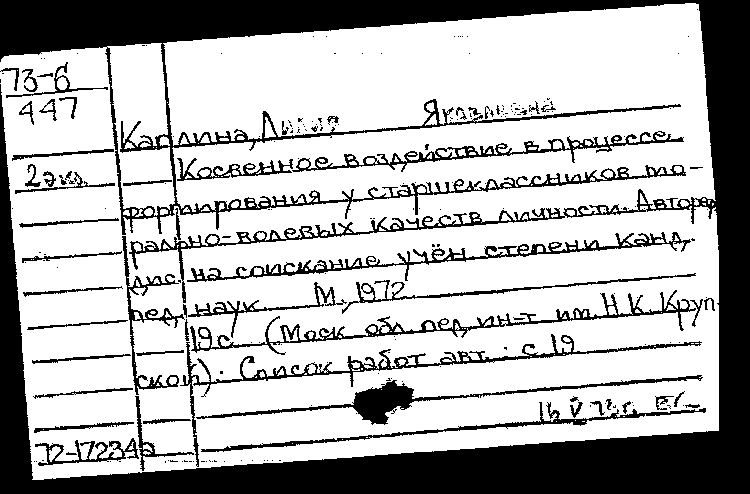 73-6
447
Каплина, Лилия Яковлевна
2 экз.
Косвенное воздействие в процессе
формирования у старшеклассников мо-
рально-волевых качеств личности. Автореф.
дис. на соискание учён. степени канд.
пед. наук. М., 1972.
19 с. (Моск. обл. пед. ин-т им. Н.К. Круп-
ской). Список работ авт.: с. 19
16 V 73г.
72-17234а